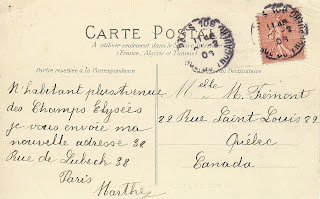 CARTE POSTALE
A utiliser seulement dans le
(France, Algérie et Tunisie)
Partie réservée à la Correspondance
du Destinataire
N'habitant plus Avenue
des Champs Elysées
je vous envoie ma
nouvelle adresse 38
Rue de Lubeck 38
Paris
Marthe
Melle M. Fremont
22 Rue Saint Louis 22
Québec
Canada